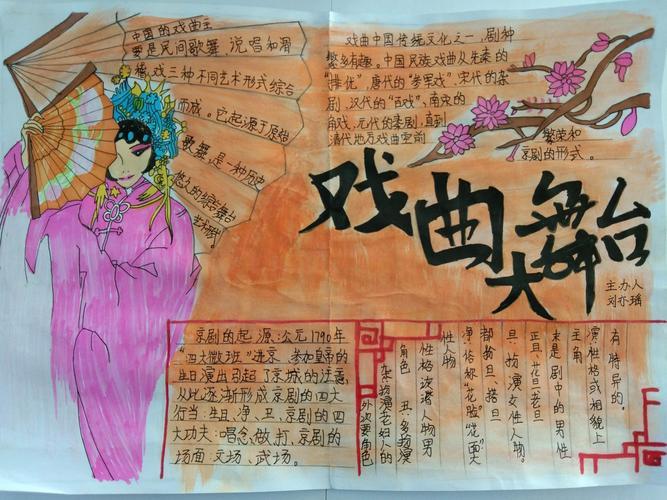 中国的戏曲主
要是民间歌舞、说唱和滑
稽戏三种不同艺术形式综合
而成。它起源于原始
歌舞,是一种历史
悠久的综合舞台
艺术样式
戏曲中国传统文化之一,剧种
繁多有趣。中国民族戏曲从先秦的
"俳优"、唐代的"参军戏"、宋代的杂
剧、汉代的"百戏"、南宋的
戏、元代的杂剧,直到
清代地方戏曲空前
繁荣和
京剧的形式。
戏曲大舞台
主办人
刘亦瑶
京剧的起源:公元1790年
"四大徽班"进京,参加皇帝的
生日演出引起了京城的注意,
从此逐渐形成京剧的四大
行当:生、旦、净、丑、京剧的四
大功夫:唱、念、做、打、京剧的
场面文场、武场。
有特异的。
演性格或相貌上
主角
末是剧中的男性
正旦、花旦、老旦
旦:扮演女性人物。
都扮旦、搭旦
净俗称"花脸""花面"大
性人物
性格泼诸人物男
角色 丑:多扮演
杂:扮演老妇人的
外次要角色